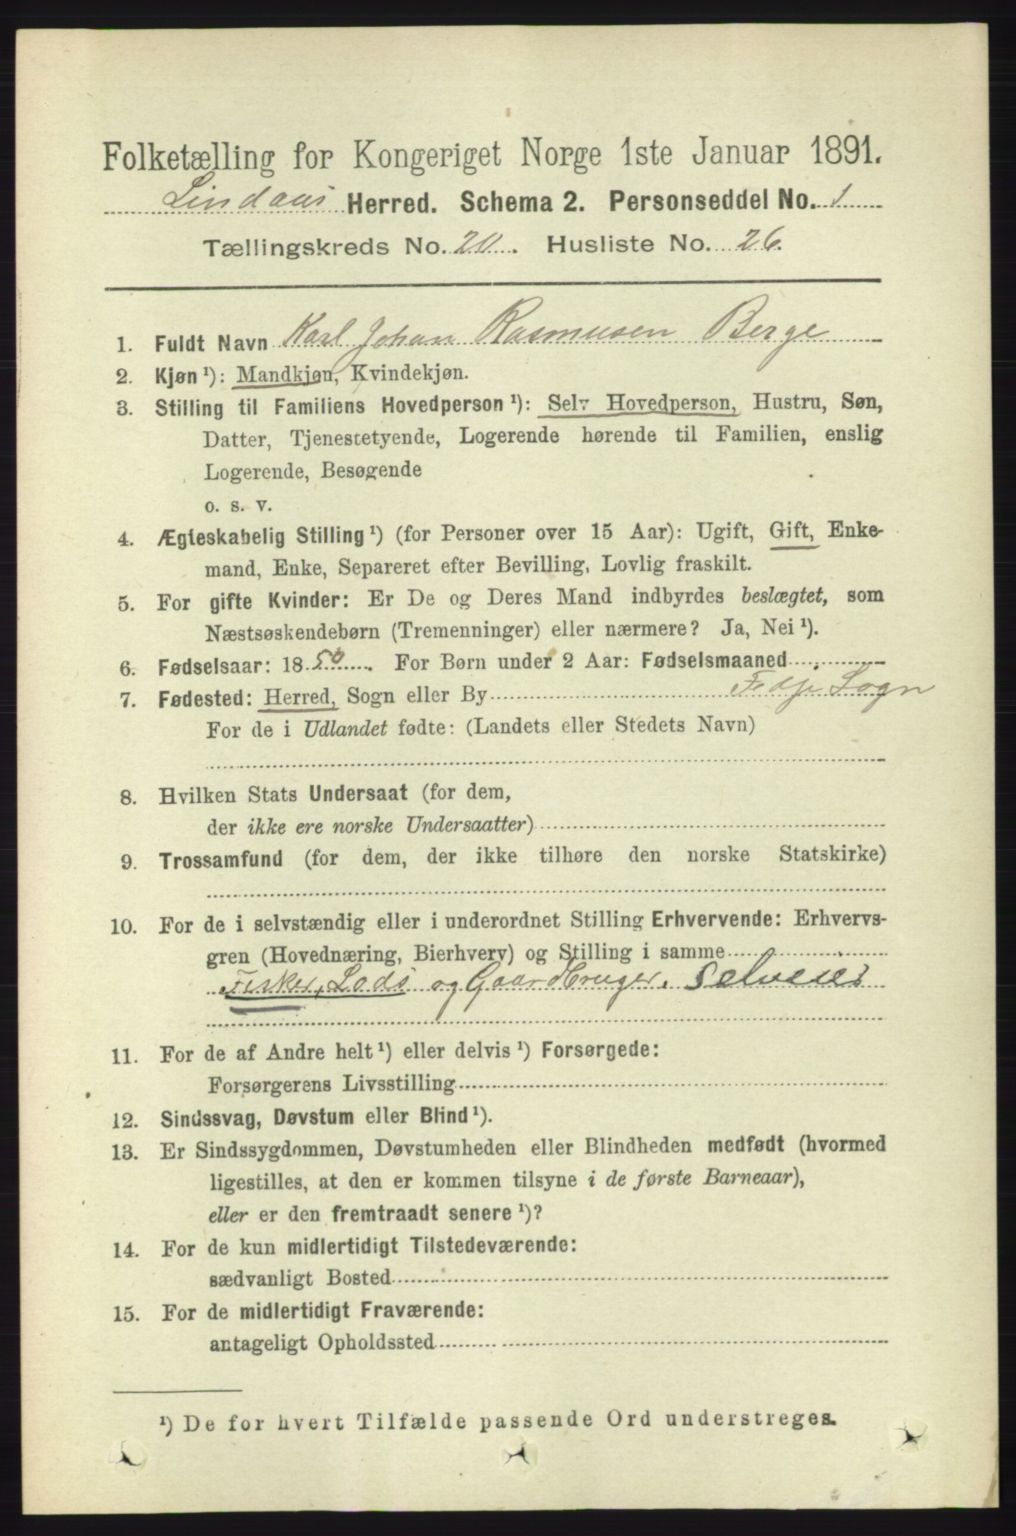 Folketælling for Kongeriget Norge 1ste Januar 1891.
Lindaas Herred. Schema 2. Personseddel No. 1
Tællingskreds No. 20. Husliste No. 26.
1. Fuldt Navn Karl Johan Rasmusen Berge
2. Kjøn¹): Mandkjøn, Kvindekjøn.
3. Stilling til Familiens Hovedperson¹): Selv Hovedperson, Hustru, Søn,
Datter, Tjenestetyende, Logerende hørende til Familien, enslig
Logerende, Besøgende
o. s. v.
4. Ægteskabelig Stilling¹) (for Personer over 15 Aar): Ugift, Gift, Enke-
mand, Enke, Separeret efter Bevilling, Lovlig fraskilt.
5. For gifte Kvinder: Er De og Deres Mand indbyrdes beslægtet, som
Næstsøskendebørn (Tremenninger) eller nærmere? Ja, Nei¹).
6. Fødselsaar: 1850. For Børn under 2 Aar: Fødselsmaaned
7. Fødested: Herred, Sogn eller By Fedje Sogn
For de i Udlandet fødte: (Landets eller Stedets Navn)
8. Hvilken Stats Undersaat (for dem,
der ikke ere norske Undersaatter)
9. Trossamfund (for dem, der ikke tilhøre den norske Statskirke)
10. For de i selvstændig eller i underordnet Stilling Erhvervende: Erhvervs-
gren (Hovednæring, Bierhverv) og Stilling i samme
Fisker, Lods og Gaardbruger. Selveier
11. For de af Andre helt¹) eller delvis¹) Forsørgede:
Forsørgerens Livsstilling
12. Sindssvag, Døvstum eller Blind¹).
13. Er Sindssygdommen, Døvstumheden eller Blindheden medfødt (hvormed
ligestilles, at den er kommen tilsyne i de første Barneaar),
eller er den fremtraadt senere¹)?
14. For de kun midlertidigt Tilstedeværende:
sædvanligt Bosted
15. For de midlertidigt Fraværende:
antageligt Opholdssted
¹) De for hvert Tilfælde passende Ord understreges.